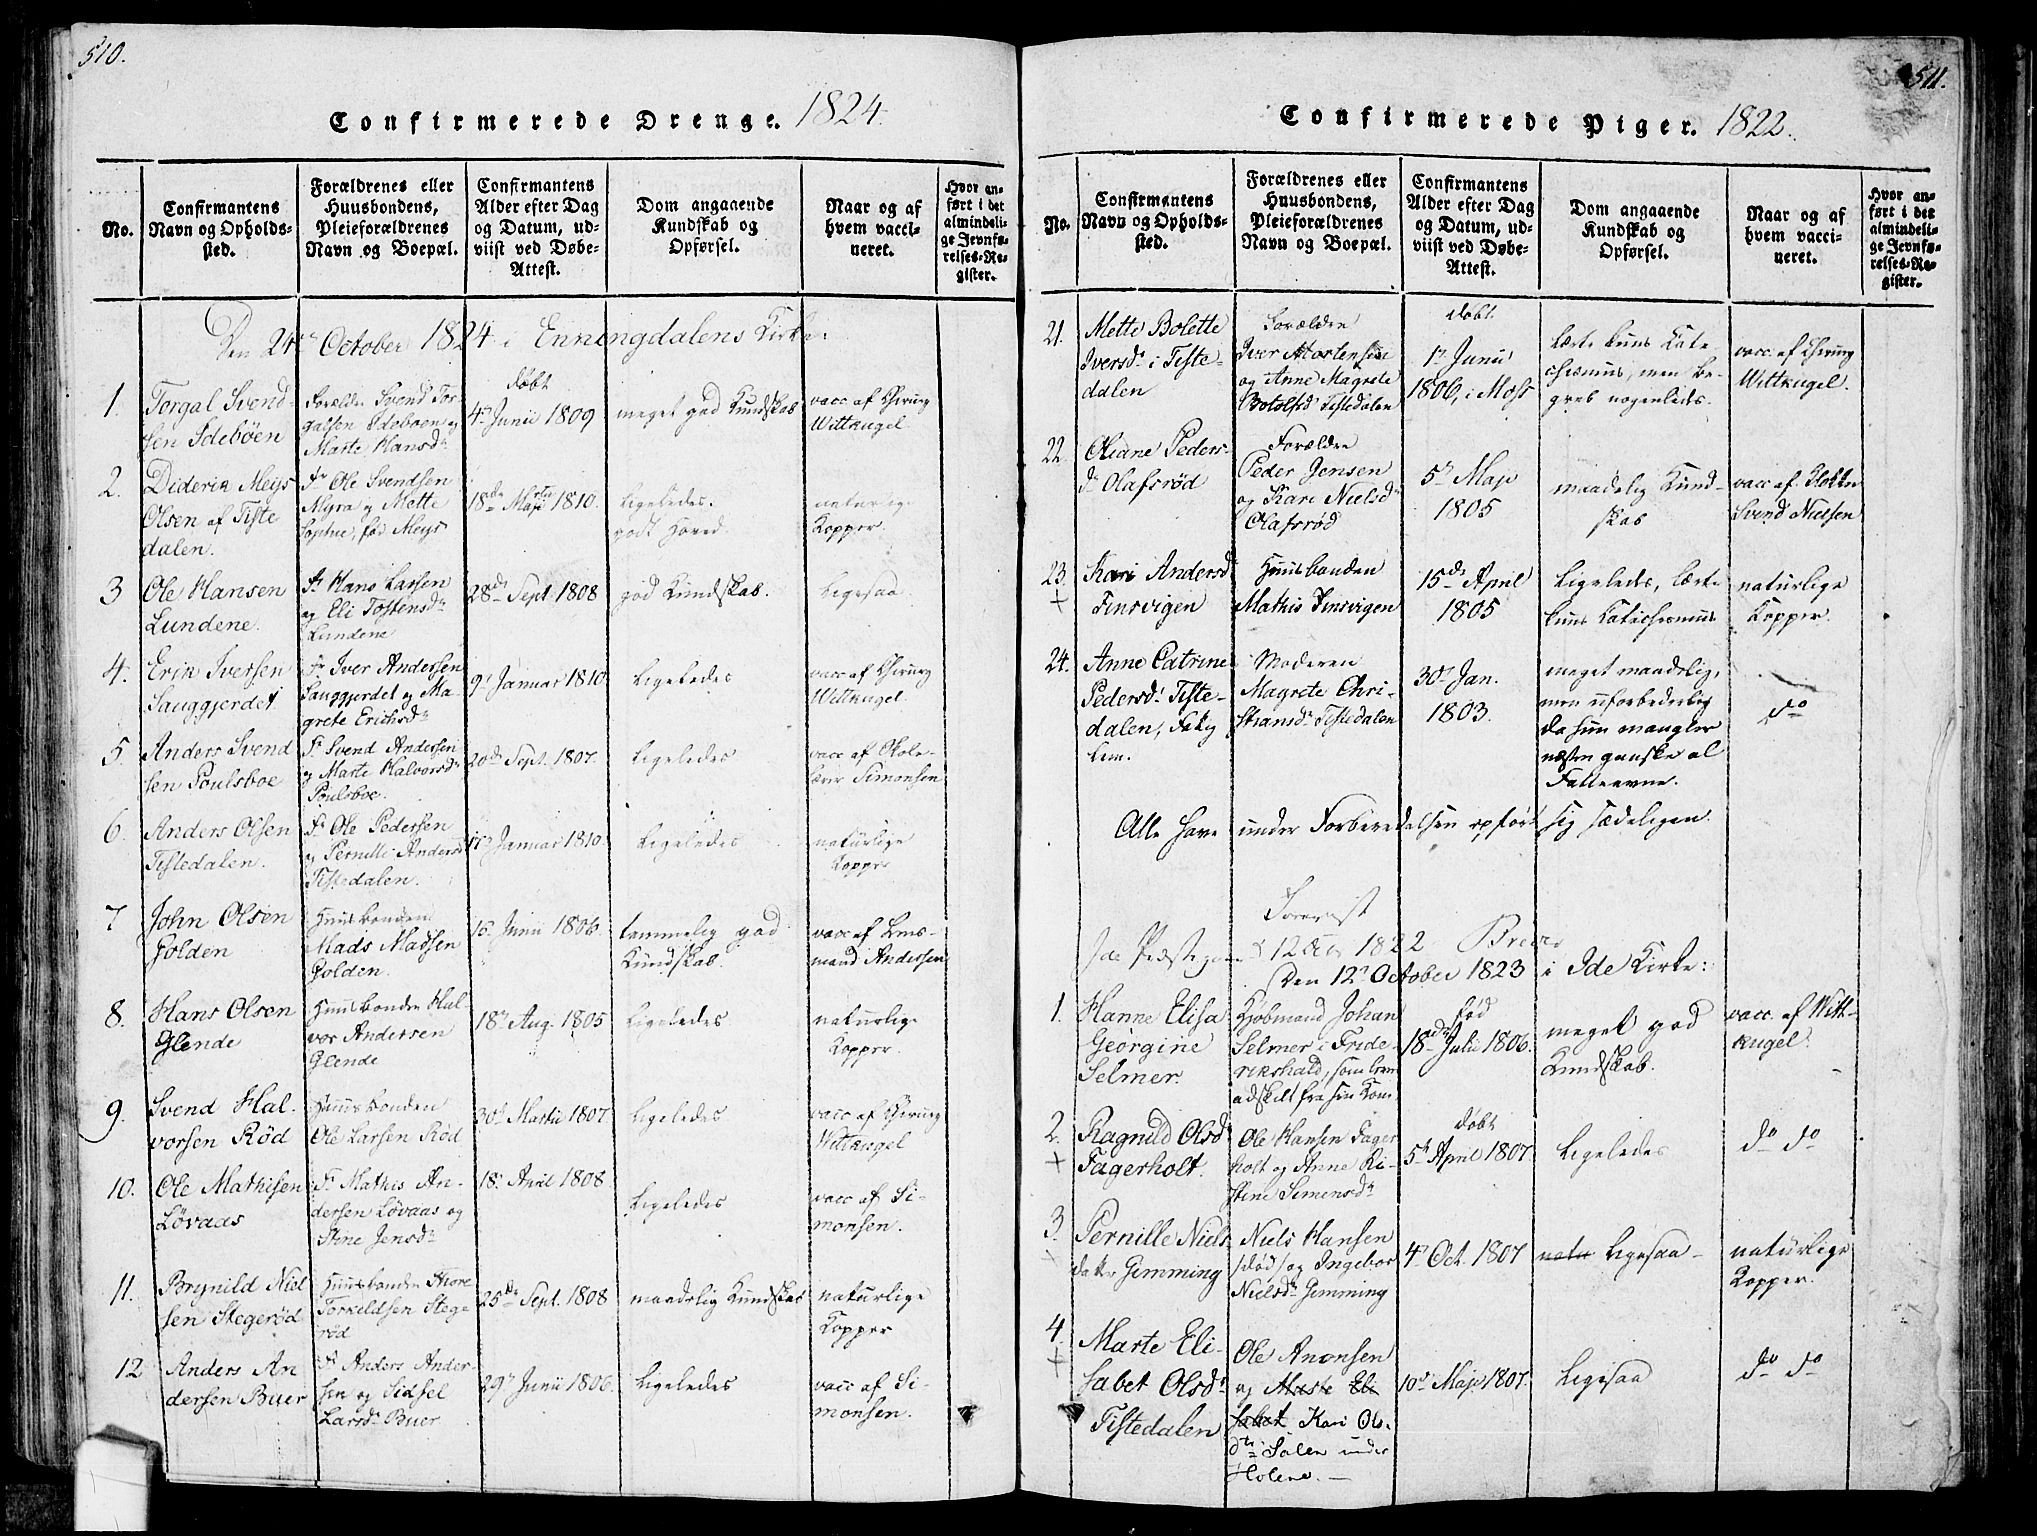 510.
Confirmerede Drenge. 1824.
No.
Confirmantens
Navn og Opholds-
sted.
Forældrenes eller
Huusbondens,
Pleieforældrenes
Navn og Boepæl.
Confirmantens
Alder efter Dag
og Datum, ud-
viist ved Døbe-
Attest.
Dom angaaende
Kundskab og
Opførsel.
Naar og af
hvem vacci-
neret.
Hvor an-
ført i det
almindeli-
ge Jevnfø-
relses-Re-
gister.
Den 24de October 1824 i Enningdalens Kirke:
1.
Torgal Svend-
sen Idebøen
Forældre Svend Tor-
galsen Idebøen og
Marte Hansdr
døbt
4de Junii 1809
meget god Kundskab
vacc af Chirurg
Wittkugel
2.
Diderik Meijs
Olsen af Tiste
dalen.
Fr Ole Svendsen
Myra og Mette
Sophie, fød Meijs
18de Martii 1810.
Ligeledes.
godt Hoved
naturlig
Kopper.
3
Ole Hansen
Lundene.
Fr Hans Larsen
og Eli Tostensdr
Lundene
28de Sept 1808
god Kundskab.
Ligesaa.
4.
Erik Iversen
Sauggjerdet
Fr Iver Andersen
Sauggjerdet og Ma-
grete Erichsdr
9de Januar 1810
Ligeledes
vacc af Chirurg
Wittkugel
5.
Anders Svend
sen Poulsboe
Fr Svend Andersen
og Marte Halvorsdr
Poulsboe.
20de Sept. 1807.
Ligeledes
vacc af Skole-
lærer Simonsen
6.
Anders Olsen
Tistedalen.
Fr Ole Pedersen
og Pernille Andersd
Tistedalen.
Januar 1810.
Ligeledes
naturlige
Kopper
7
John Olsen
Holden
Huusbonden
Mads Madsen
Holden.
Junii 1806.
temmelig god
Kundskab.
vacc af Lens-
mand Andersen
8.
Hans Olsen
Glende
Huusbonden Hal-
vor Andersen
Glende
18de Aug. 1805
Ligeledes
naturlige
Kopper.
9.
Svend Hal-
vorsen Rød
Huusbonden
Ole Larsen Rød
30de Martii 1807.
Ligeledes
vacc af Chirurg
Wittkugel
10.
Ole Mathisen
Løvaas
Fr Mathis An-
dersen Løvaas og
Stine Jensdr
18de April 1808
Ligeledes
vacc af Si-
monsen.
11.
Brynild Niel
sen Stegerød
Huusbonden Thore
Torkeldsen Stege
rød
25de Sept. 1808
maadelig Kundskab
naturlige
Kopper
12
Anders An
dersen Buer
Fr Anders Ander-
sen og Sidsel
Larsdr Buer
29de Junii 1806.
Ligeledes
vacc af Si-
monsen.
511.
Confirmerede Piger. 1822.
No.
Confirmantens
Navn og Opholds-
sted.
Forældrenes eller
Huusbondens,
Pleieforældrenes
Navn og Boepæl.
Confirmantens
Alder efter Dag
og Datum, ud-
viist ved Døbe-
Attest.
Dom angaaende
Kundskab og
Opførsel.
Naar og af
hvem vacci-
neret.
Hvor an-
ført i det
almindeli-
ge Jevnfø-
relses-Re-
gister.
21.
Mette Bolette
Iversdr i Tiste-
dalen
Forældre
Iver Mortensen
og Anne Magrete
Botolfsd Tistedalen
døbt
1de Junii
1806, i Moss
læste kuns Kate-
chismus, men be-
greb nogenledes.
vacc. af Chirurg
Wittkugel.
22.
Oliane Peders-
dr Olafsrød
Forældre
Peder Jensen
og Kari Nielsdr
Olafsrød
5de Maji
1805
maadelig Kund-
skab
vacc. af Klokker
Svend Nielsen
23.
+
Kari Andersd
Finsvigen
Huusbonden
Mathis Finsvigen
15de April
1805
Ligeledes, læste
kuns Katechismus
naturlige
Kopper.
24.
Anne Catrine
Pedersdr Tiste-
dalen, Fattig
Lem.
Moderen
Magrete Chri-
stiansdr Tistedalen
30de Jan.
1803.
meget maadelig,
men uforbederlig
da hun mangler
næsten ganske al
Fatteevne.
do
Alle have under Forberedelsen opført sig sædeligen.
12 Octr 1822
Den 12te October 1823 i Ide Kirke:
1.
Hanne Elisa
Georgine
Selmer.
Kjøbmand Johan
Selmer i Fride-
rikshald, som lever
adskilt fra sin Kone
fød
18de Julii 1806.
meget god
Kundskab.
vacc. af Witt-
kugel.
2.
+
Ragnild Olsd
Fagerholt.
Ole Hansen Fager
holt og Anne Ki-
stine Simensdr
døbt
5te April 1807.
Ligeledes
do do
3.
Pernille Niels
datter Gimming
Niels Hansen
/død/ og Ingebor
Nielsdr Gimming
4de Oct. 1807
Ligesaa
naturlige
Kopper.
4.
+
Marte Eli-
sabet Olsdr
Tistedalen
Ole Anonsen
og Marte Eli
sabet Kari Ols-
dtr Solen under
Holene.
10de Maji 1807.
Ligesaa
do do